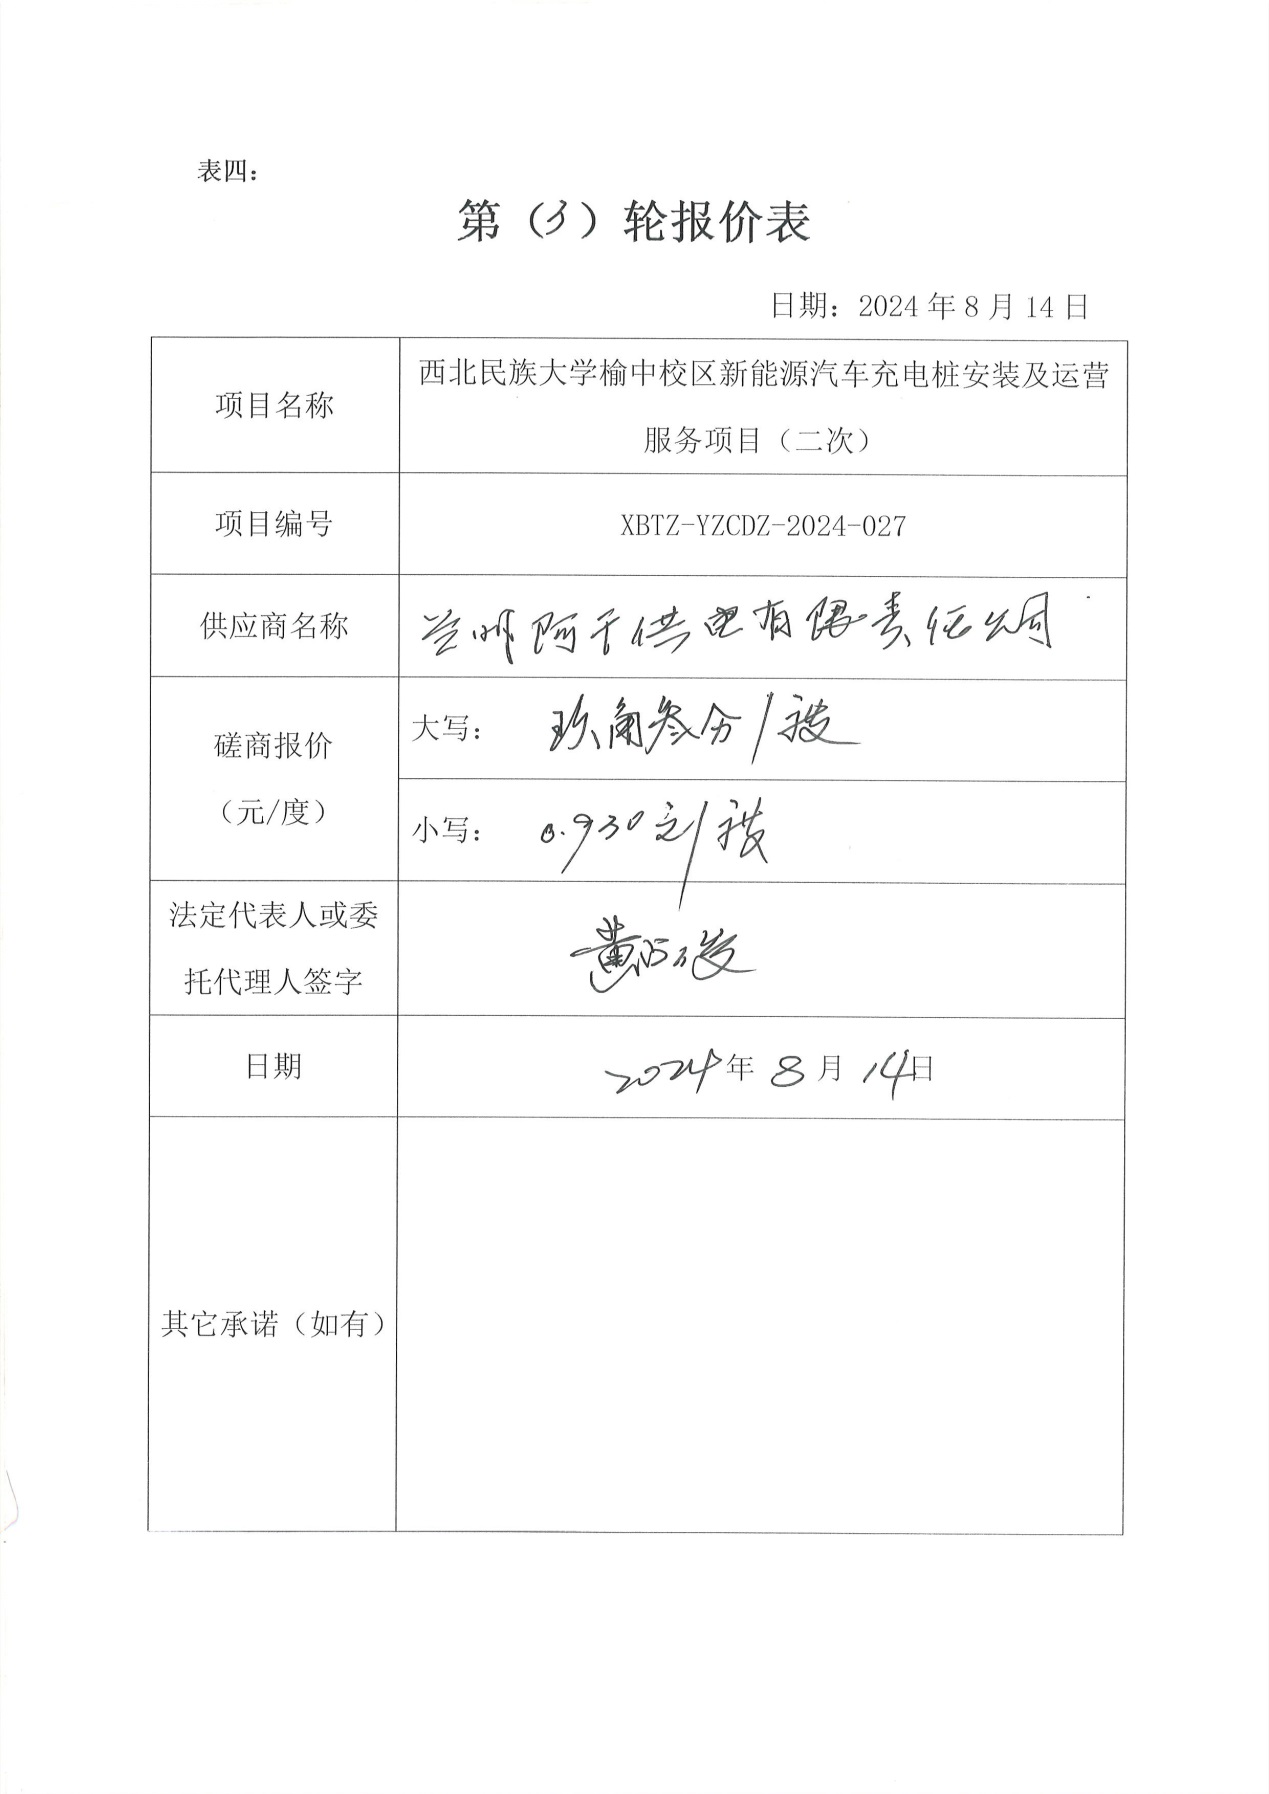 表四：
第（3）轮报价表
日期：2024年8月14日
项目名称
西北民族大学榆中校区新能源汽车充电桩安装及运营
服务项目（二次）
项目编号
XBTZ-YZCDZ-2024-027
供应商名称
兰州阿干供电有限责任公司
磋商报价
（元/度）
大写：玖角叁分/度
小写：0.930元/度
法定代表人或委
托代理人签字
黄
日期
2024年8月14日
其它承诺（如有）